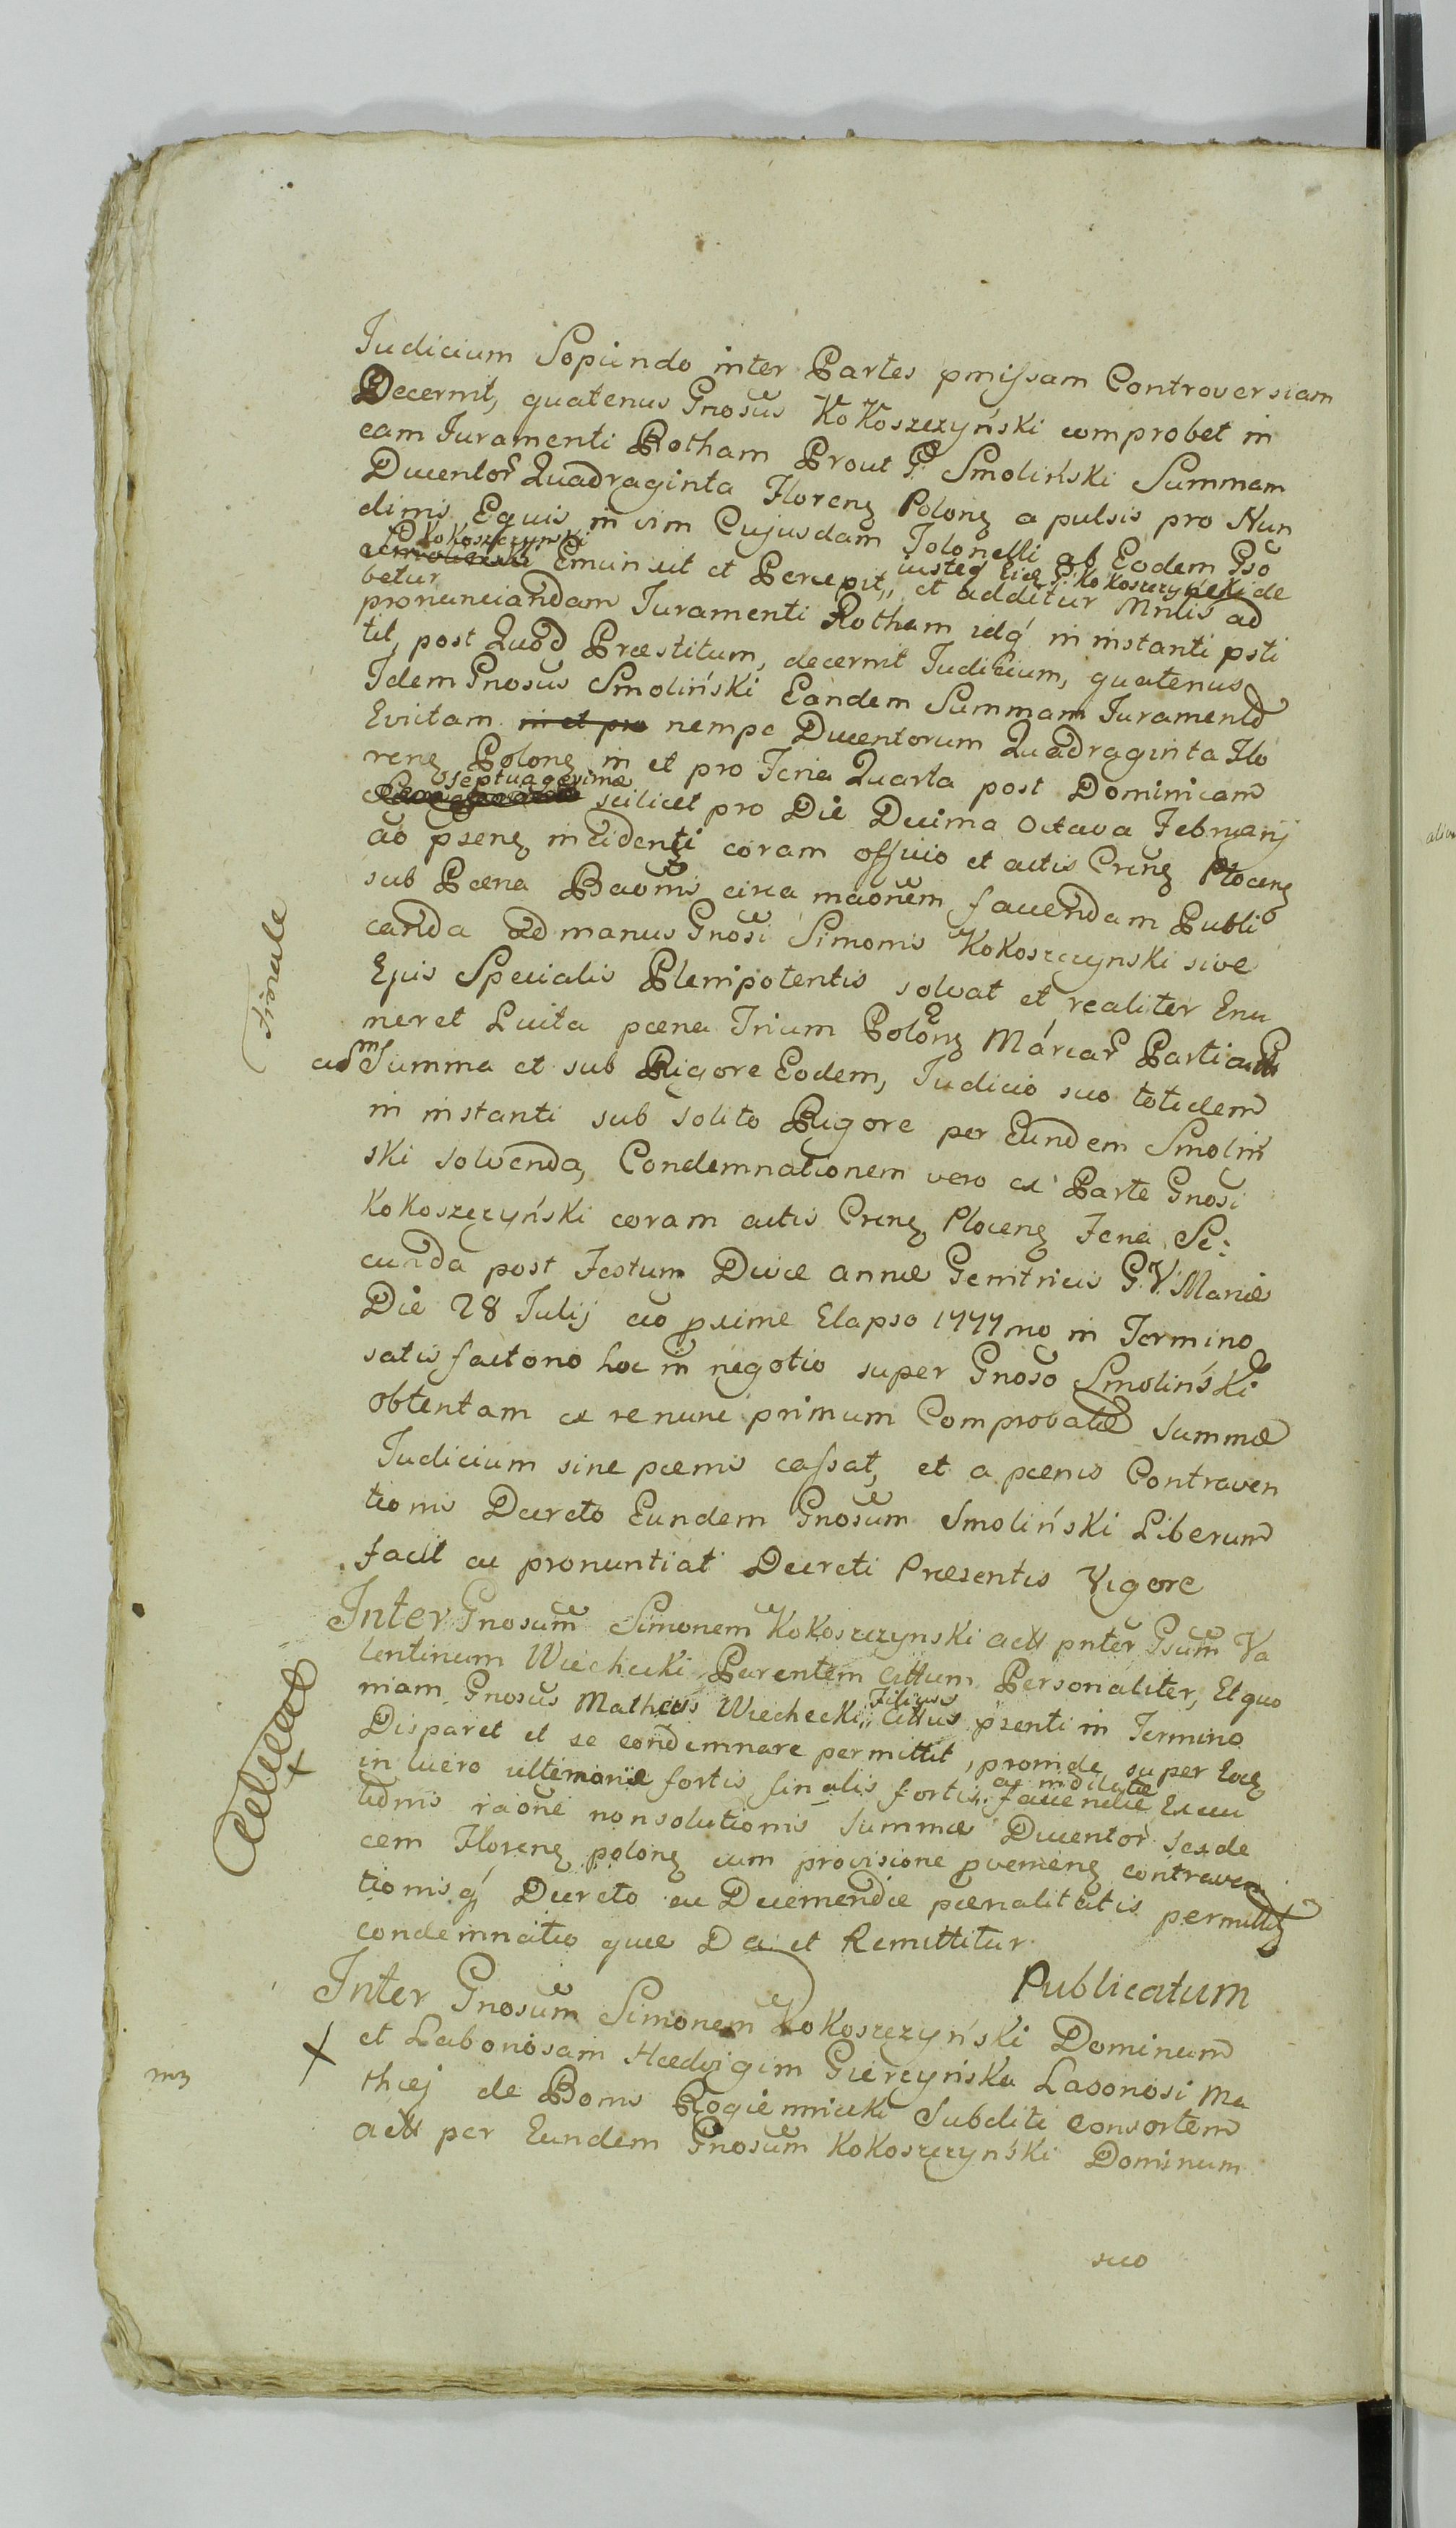 Judicium Sopiendo inter Partes pmissam Controversiam
Decernit, quatenus Gnosus Kokoszczyński comprobet in
eam Juramenti Rotham Prout G. Smoliński Summam
Ducentor Quadraginta Floreng Polong a pulsis pro Nun
dinis Equis in vim Cujusdam Tolonelli ab Eodem Gso
G Kokoszczynski
Emunxit et Percepit, et additur Mnlis ad
iusteq Eidē G. Kokoszczynski de
betur
pronunciandam Juramenti Rotham idq in instanti psti
tit, post Quod Præstitum, decernit Judicium, quatenus
Idem Gnosus Smoliński Eandem Summam Juramento
Evictam in et pro nempe Ducentorum Quadraginta Flo
reng Polong in et pro Feria Quarta post Dominicam
septuagesimæ
scilicet pro Die Decima Octava Februarij
ao pseng incidenti coram officio et actis Creng Ploceng
sub Pœna Baonis circa maonem facendam Publi
canda ad manus Gnosi Simonis Kokoszczynski sive
Ejus Specialis Plenipotentis solvat et realiter Enu
meret Luita pœna Trium Polong Marcar Parti
Summa et sub Rigore Eodem, Judicio suo totidem
in instanti sub solito Rigore per Eundem Smoliń
ski solvenda, Condemnationem vero ex Parte Gnosi
Kokoszczyński coram actis Creng Ploceng Feria Se:
cunda post Festum Divæ Annæ Genitricis G. V. Mariæ
Die 28 Julij ao pxime Elapso 1777mo in Termino
satisfactorio hoc in negotio super Gnoso Smoliński
obtentam ex re nunc primum Comprobatæ Summæ
Judicium sine pœnis cassat, et a pœnis Contraven
tionis Decreto Eundem Gnosum Smoliński Liberum
facit ac pronuntiat Decreti Præsentis Vigore
Finale
Inter Gnosum Simonem Kokoszczynski act pnter Gsum Va
lentinum Wiechecki Parentem Cittum Personaliter, Et quo
niam Gnosus Matheus Wiechecki Filius Cittus psenti in Termino
Disparet et se condemnare permittit, proinde super Eoq
in lucro ultimariæ fortis finalis fortis ac militatæ facendæ Execu
tionis raone nonsolutionis Summæ Ducentor Sexde
cem Floreng polong cum provisione pvenieng contraven
tionisq Decreto ac Decernendæ pœnalitatis permittit
condemnatio quæ Da et Remittitur
Publicatum
Inter Gnosum Simonem Kokoszczyński Dominum
et Laboriosam Hedvigim Laboriosi Ma
thiej de Bonis Subditi consortem
act per Eundem Gnosum Kokoszczyński Dominum
suo